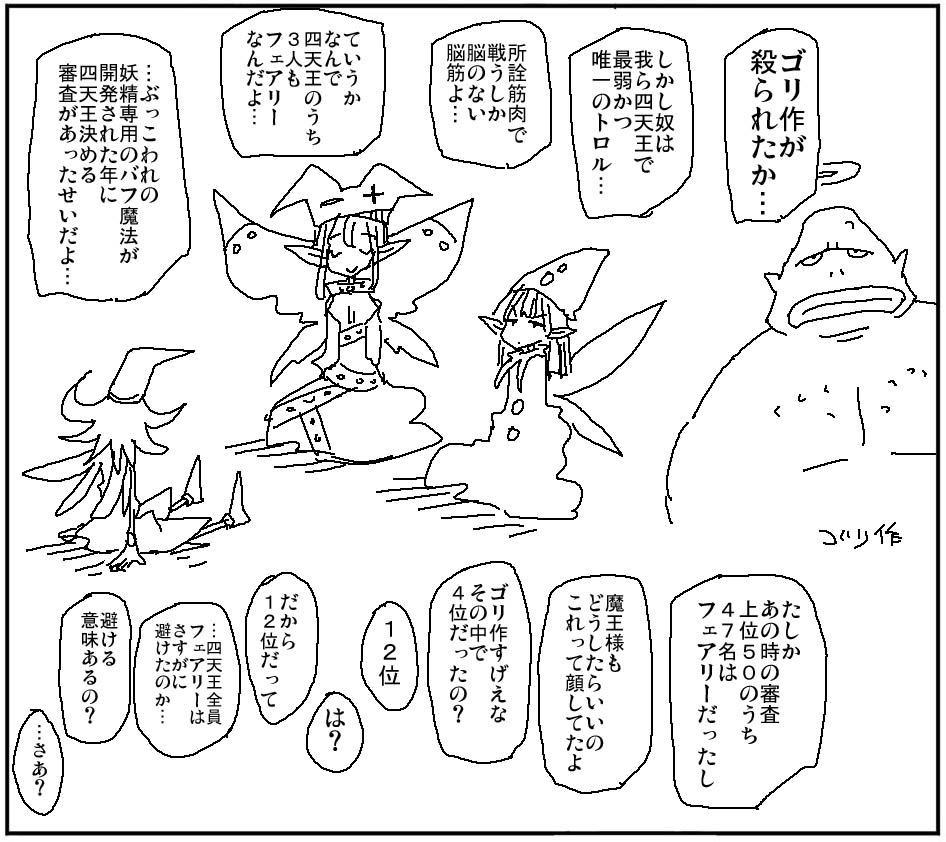 ゴリ作が
殺られたか…
しかし奴は
我ら四天王で
最弱かつ
唯一のトロル…
所詮筋肉で
戦うしか
脳のない
脳筋よ…
ていうか
なんで
四天王のうち
3人も
フェアリー
なんだよ…
…ぶっこわれの
妖精専用のバフ魔法が
開発された年に
四天王決める
審査があったせいだよ…
ゴリ作
たしか
あの時の審査
上位50のうち
47名は
フェアリーだったし
魔王様も
どうしたらいいの
これって顔してたよ
ゴリ作すげえな
その中で
4位だったの?
12位
は?
だから
12位だって
…四天王全員
フェアリーは
さすがに
避けたのか…
避ける
意味あるの?
…さあ?